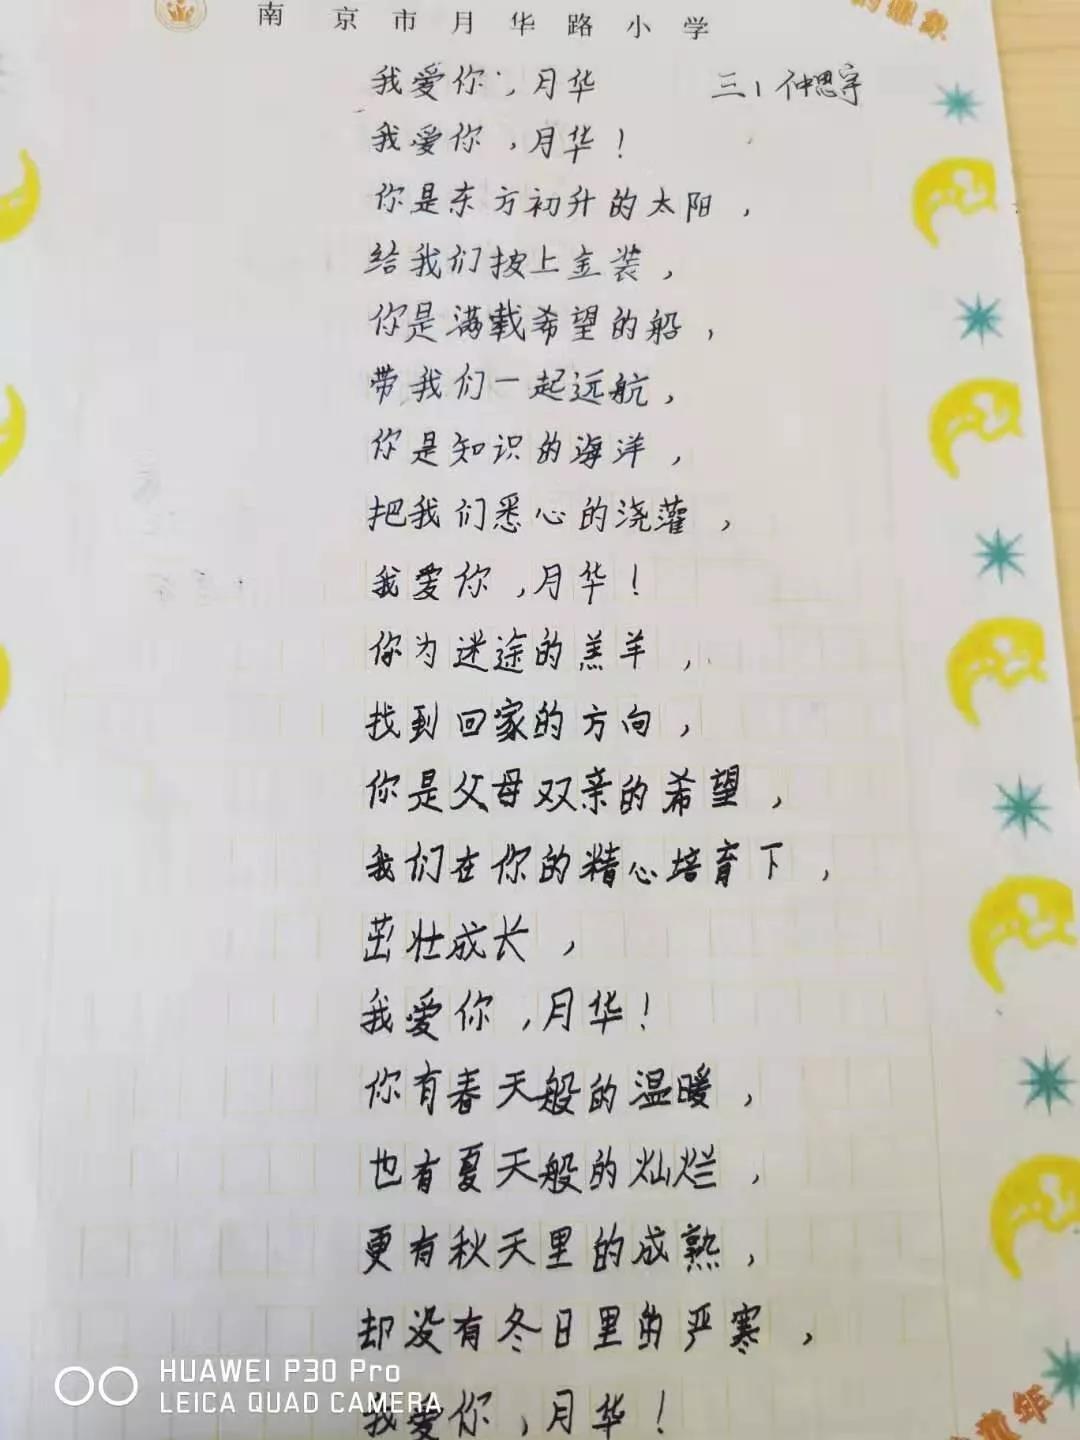 南京市月华路小学
我爱你，月华 三1 仲思宇
我爱你，月华！
你是东方初升的太阳，
给我们披上金装，
你是满载希望的船，
带我们一起远航，
你是知识的海洋，
把我们悉心的浇灌，
我爱你，月华！
你为迷途的羔羊，
找到回家的方向，
你是父母双亲的希望，
我们在你的精心培育下，
茁壮成长，
我爱你，月华！
你有春天般的温暖，
也有夏天般的灿烂，
更有秋天里的成熟，
却没有冬日里的严寒，
我爱你，月华！
HUAWEI P30 Pro
LEICA QUAD CAMERA